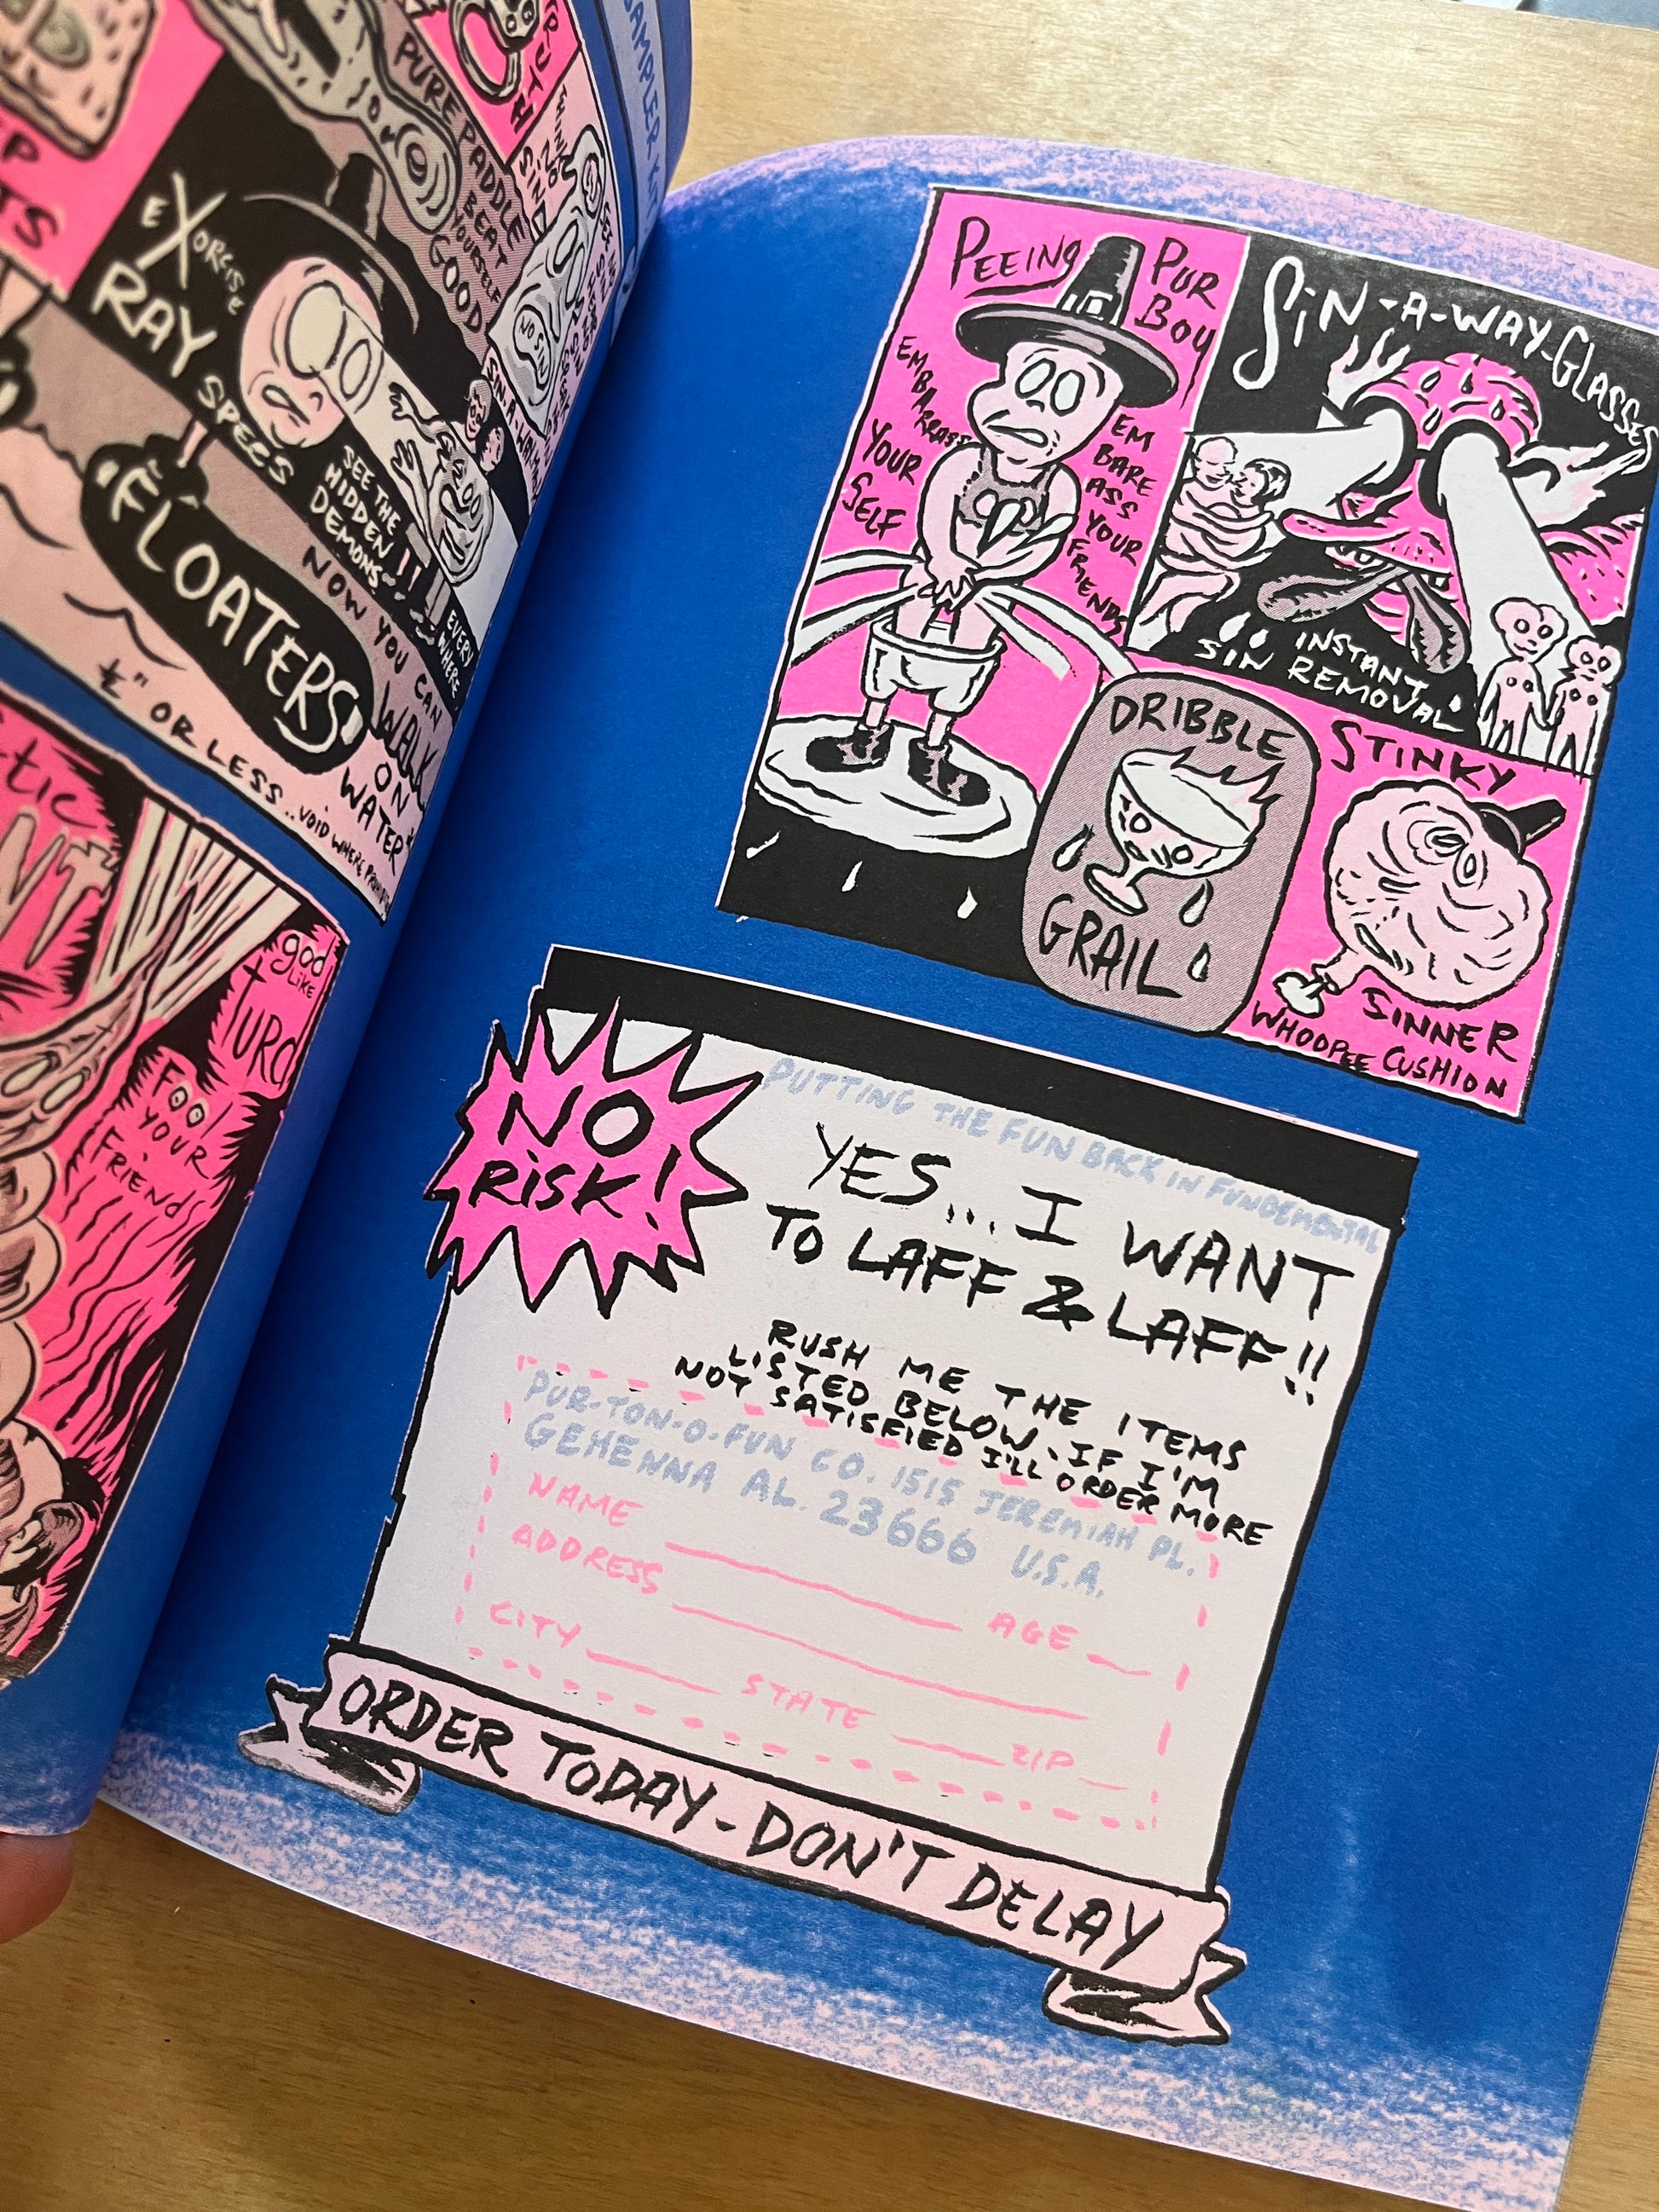 SAMPLER KIT
PURE PADDLE
BEAT
YOURSELF
GOOD
TRUTH
EXORCISM
RAY
SPECS
SEE THE
HIDDEN
DEMONS!!
EVERY
WHERE
NO SIN
FLOATERS
NOW YOU CAN
WALK
ON
WATER*
OR LESS.. VOID WHERE
god
LIKE
turd
FOOL
YOUR
FRIEND
PEEING
PUR
BOY
EMBARRASS
YOUR
SELF
EM
BARE
ASS
YOUR
FRIENDS
SIN-A-WAY-GLASSES
INSTANT
SIN REMOVAL
DRIBBLE
GRAIL
STINKY
SINNER
WHOOPEE CUSHION
NO
RISK!
PUTTING THE FUN BACK IN FUNDEMENTAL
YES... I WANT
TO LAFF & LAFF!!
RUSH ME THE ITEMS
LISTED BELOW. IF I'M
NOT SATISFIED I'LL ORDER MORE
PUR-TON-O-FUN CO. 1515 JEREMIAH PL.
GEHENNA AL. 23666 U.S.A.
NAME AGE
ADDRESS
CITY STATE ZIP
ORDER TODAY - DON'T DELAY